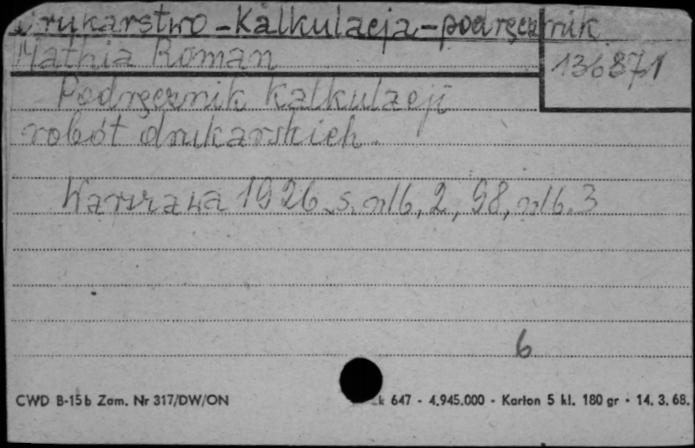 Drukarstwo - Kalkulacja - podręcznik
Mathia Roman
136871
Podręcznik kalkulacji
robót drukarskich.
Warszawa 1926. s. nlb. 2, 98, nlb. 3
6
CWD B-15b Zam. Nr 317/DW/ON
k 647 - 4.945.000 - Karton 5 kl. 180 gr - 14. 3. 68.